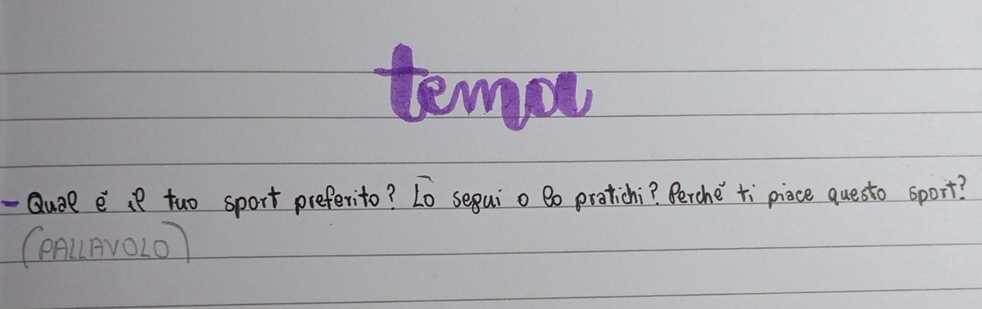 tema
- Qual è il tuo sport preferito? Lo segui o lo pratichi? Perché ti piace questo sport?
(PALLAVOLO)